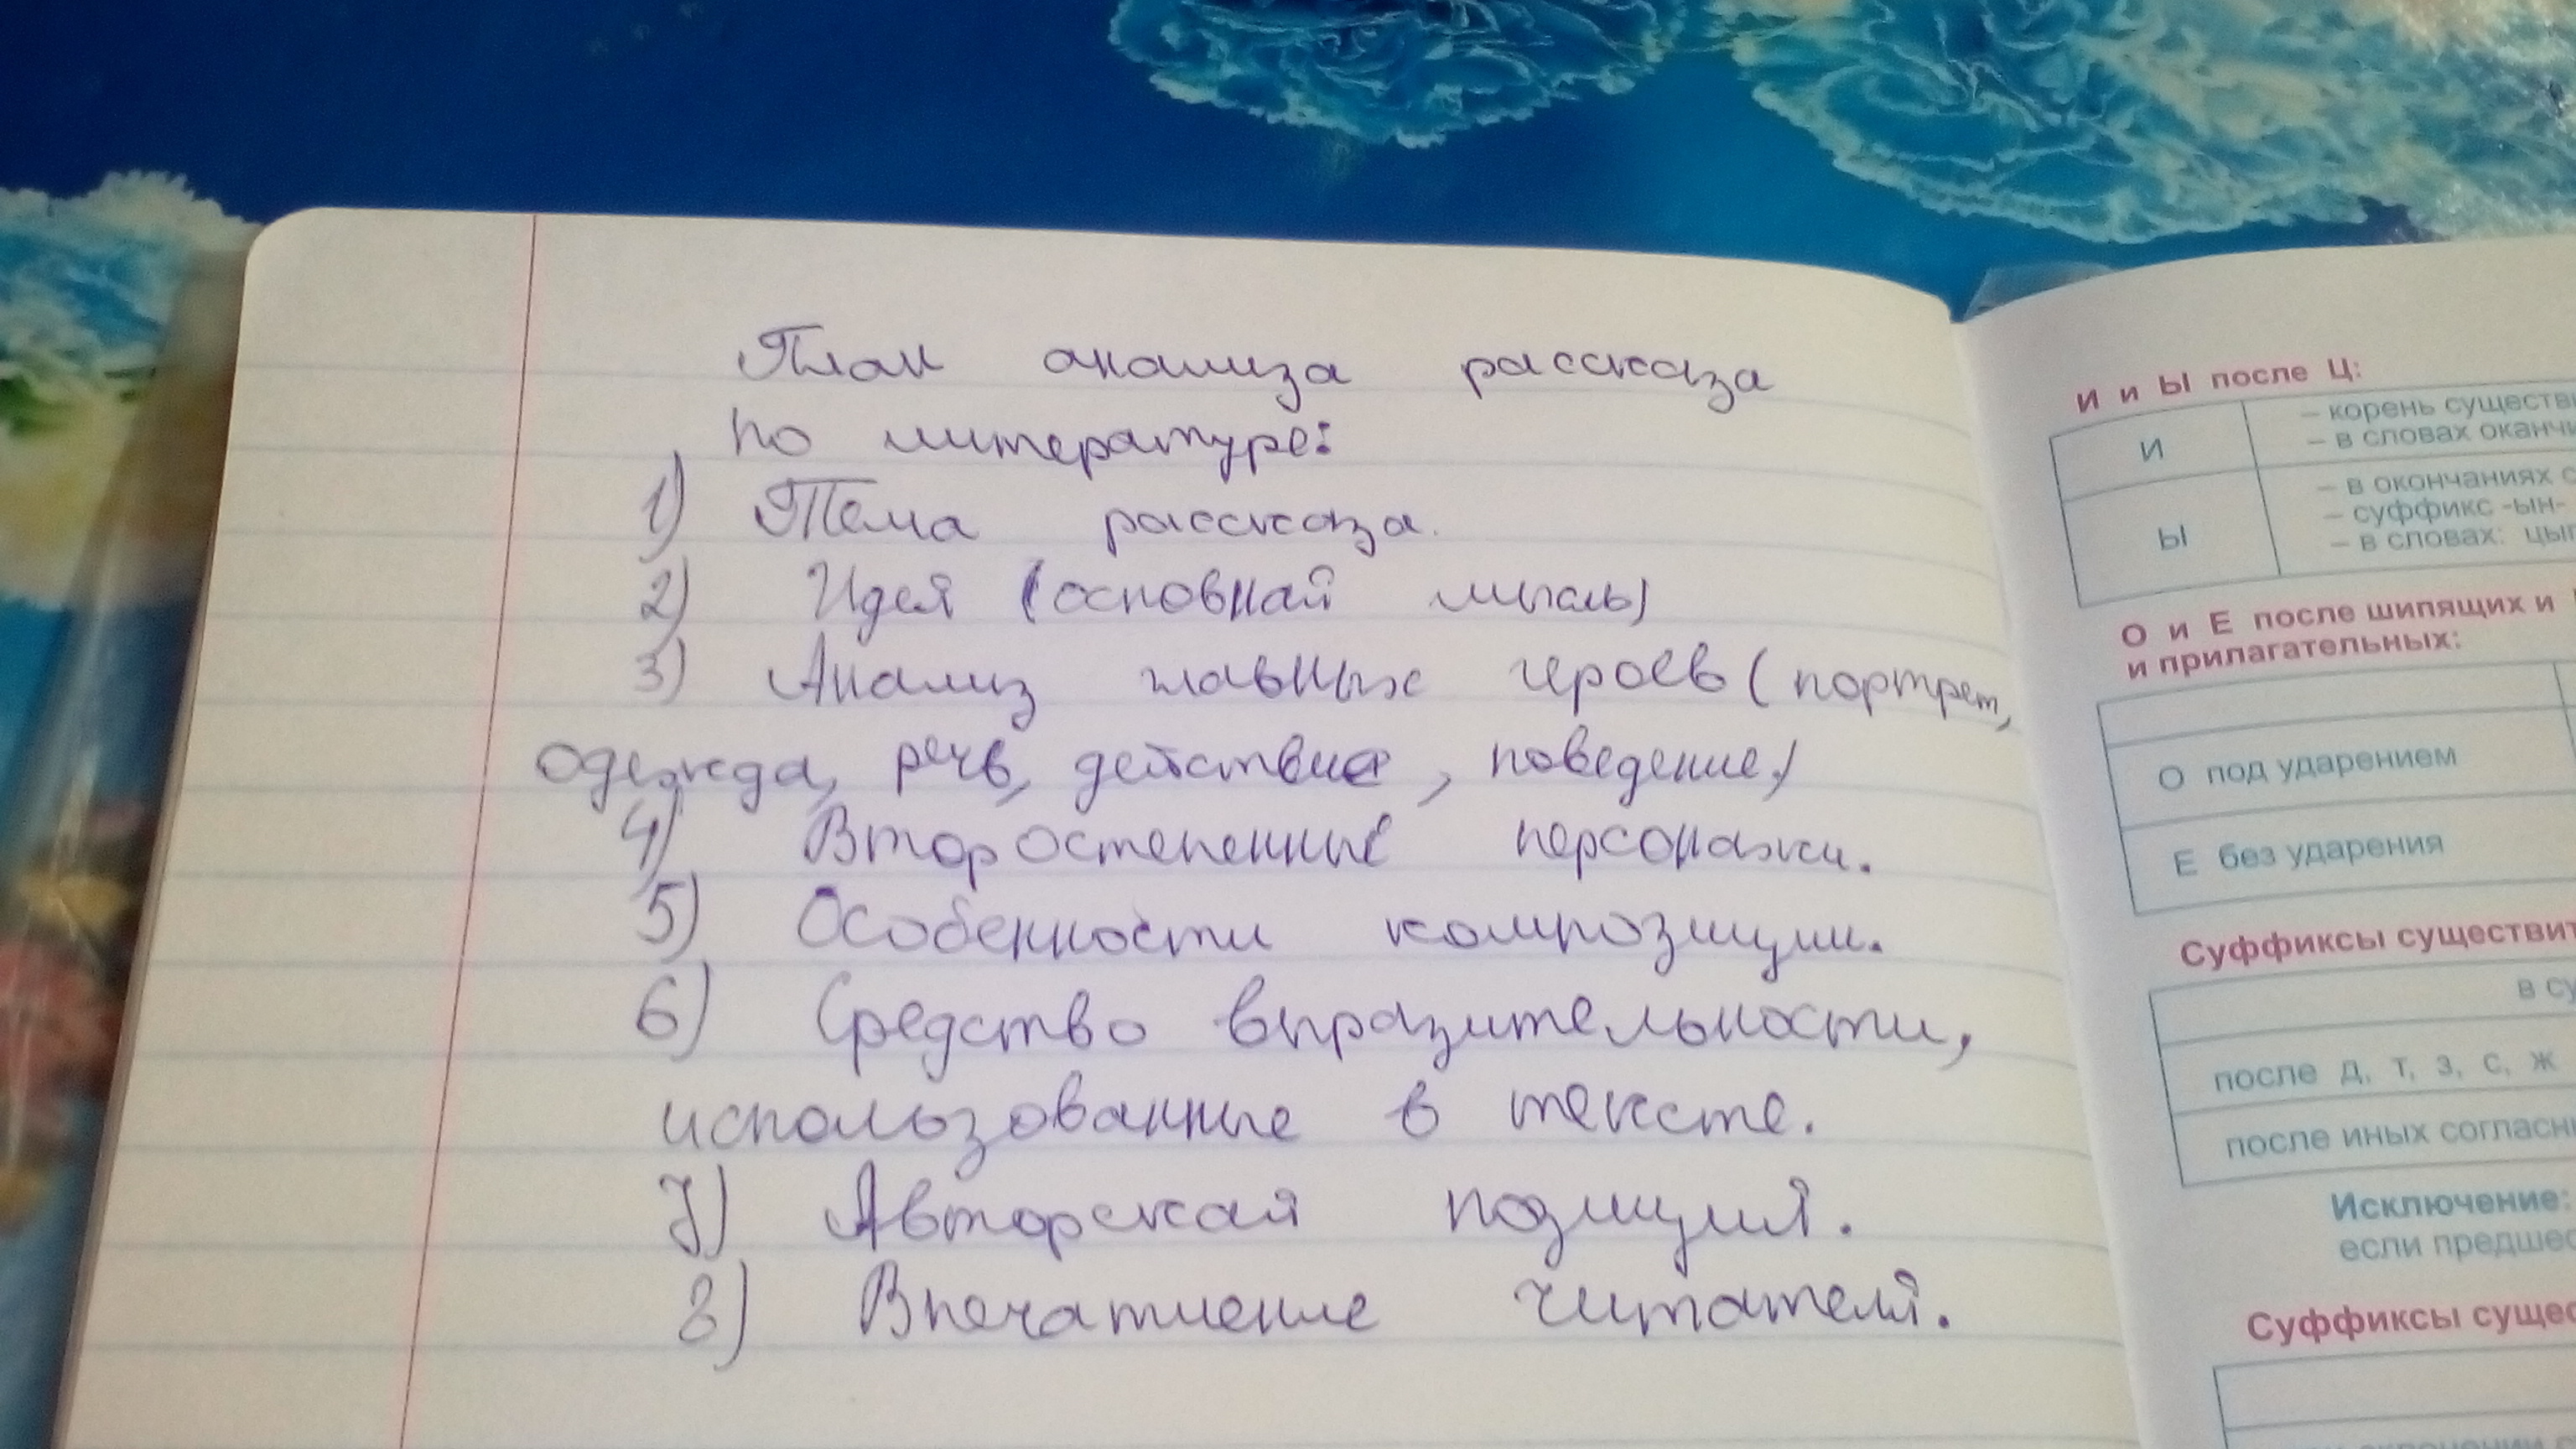 План анализа рассказа
по литературе:
1) Тема рассказа.
2) Идея (основная мысль)
3) Анализ главных героев (портрет,
одежда, речь, действие, поведение)
4) Второстепенные персонажи.
5) Особенности композиции.
6) Средство выразительности,
использованные в тексте.
7) Авторская позиция.
8) Впечатление читателя.
И и Ы после Ц:
И
– корень существи
– в словах оканчи
Ы
– в окончаниях с
– суффикс -ын-
– в словах: цып
О и Е после шипящих и
и прилагательных:
О под ударением
Е без ударения
Суффиксы существит
в су
после д, т, з, с, ж
после иных согласн
Исключение:
если предшес
Суффиксы сущес